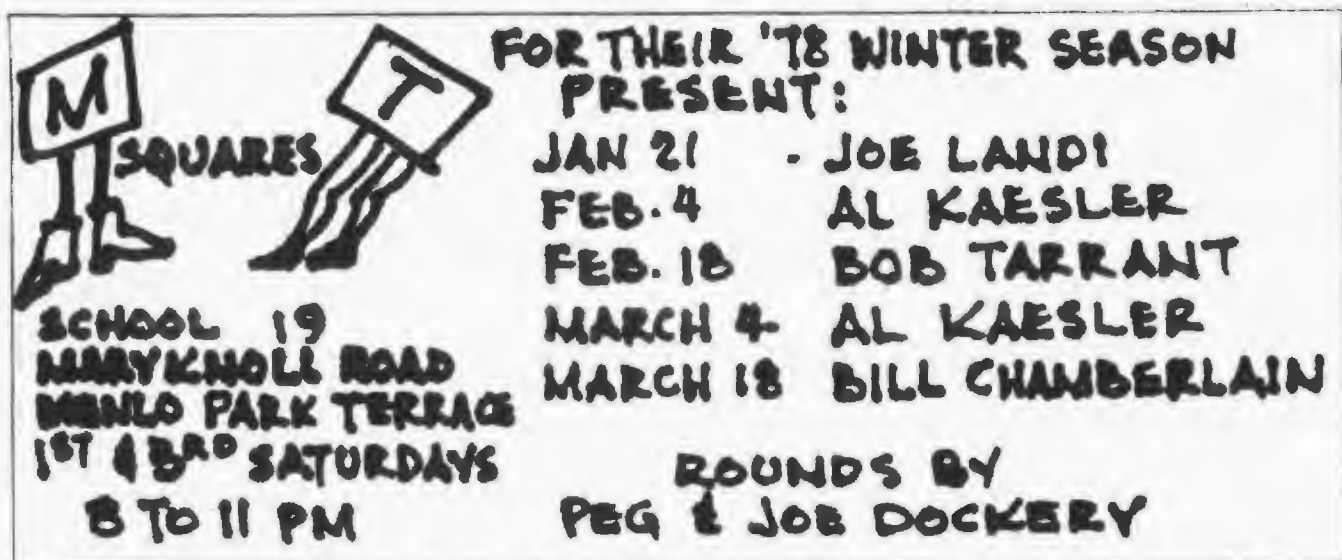 M T
SQUARES
SCHOOL 19
MARYKNOLL ROAD
MENLO PARK TERRACE
1ST & 3RD SATURDAYS
8 TO 11 PM
FOR THEIR '78 WINTER SEASON
PRESENT:
JAN 21 - JOE LANDI
FEB. 4 AL KAESLER
FEB. 18 BOB TARRANT
MARCH 4 AL KAESLER
MARCH 18 BILL CHAMBERLAIN
ROUNDS BY
PEG & JOE DOCKERY